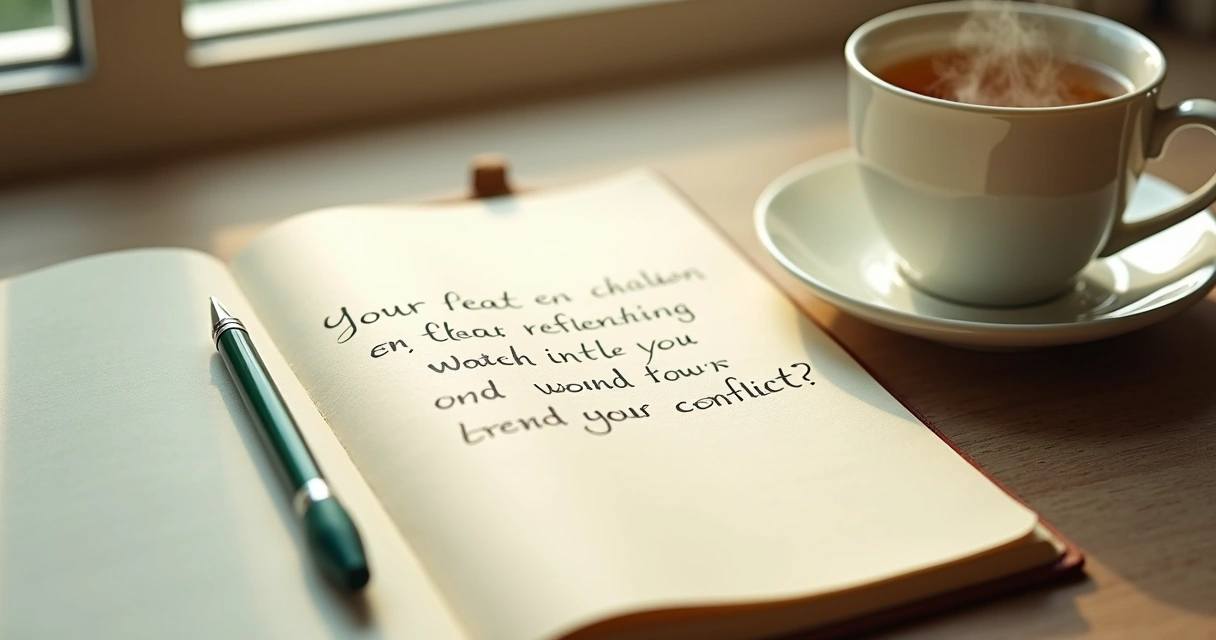 Your feat en challen
en, fleat reflenthing
watch intle you
ond woind tour
trend your conflict?